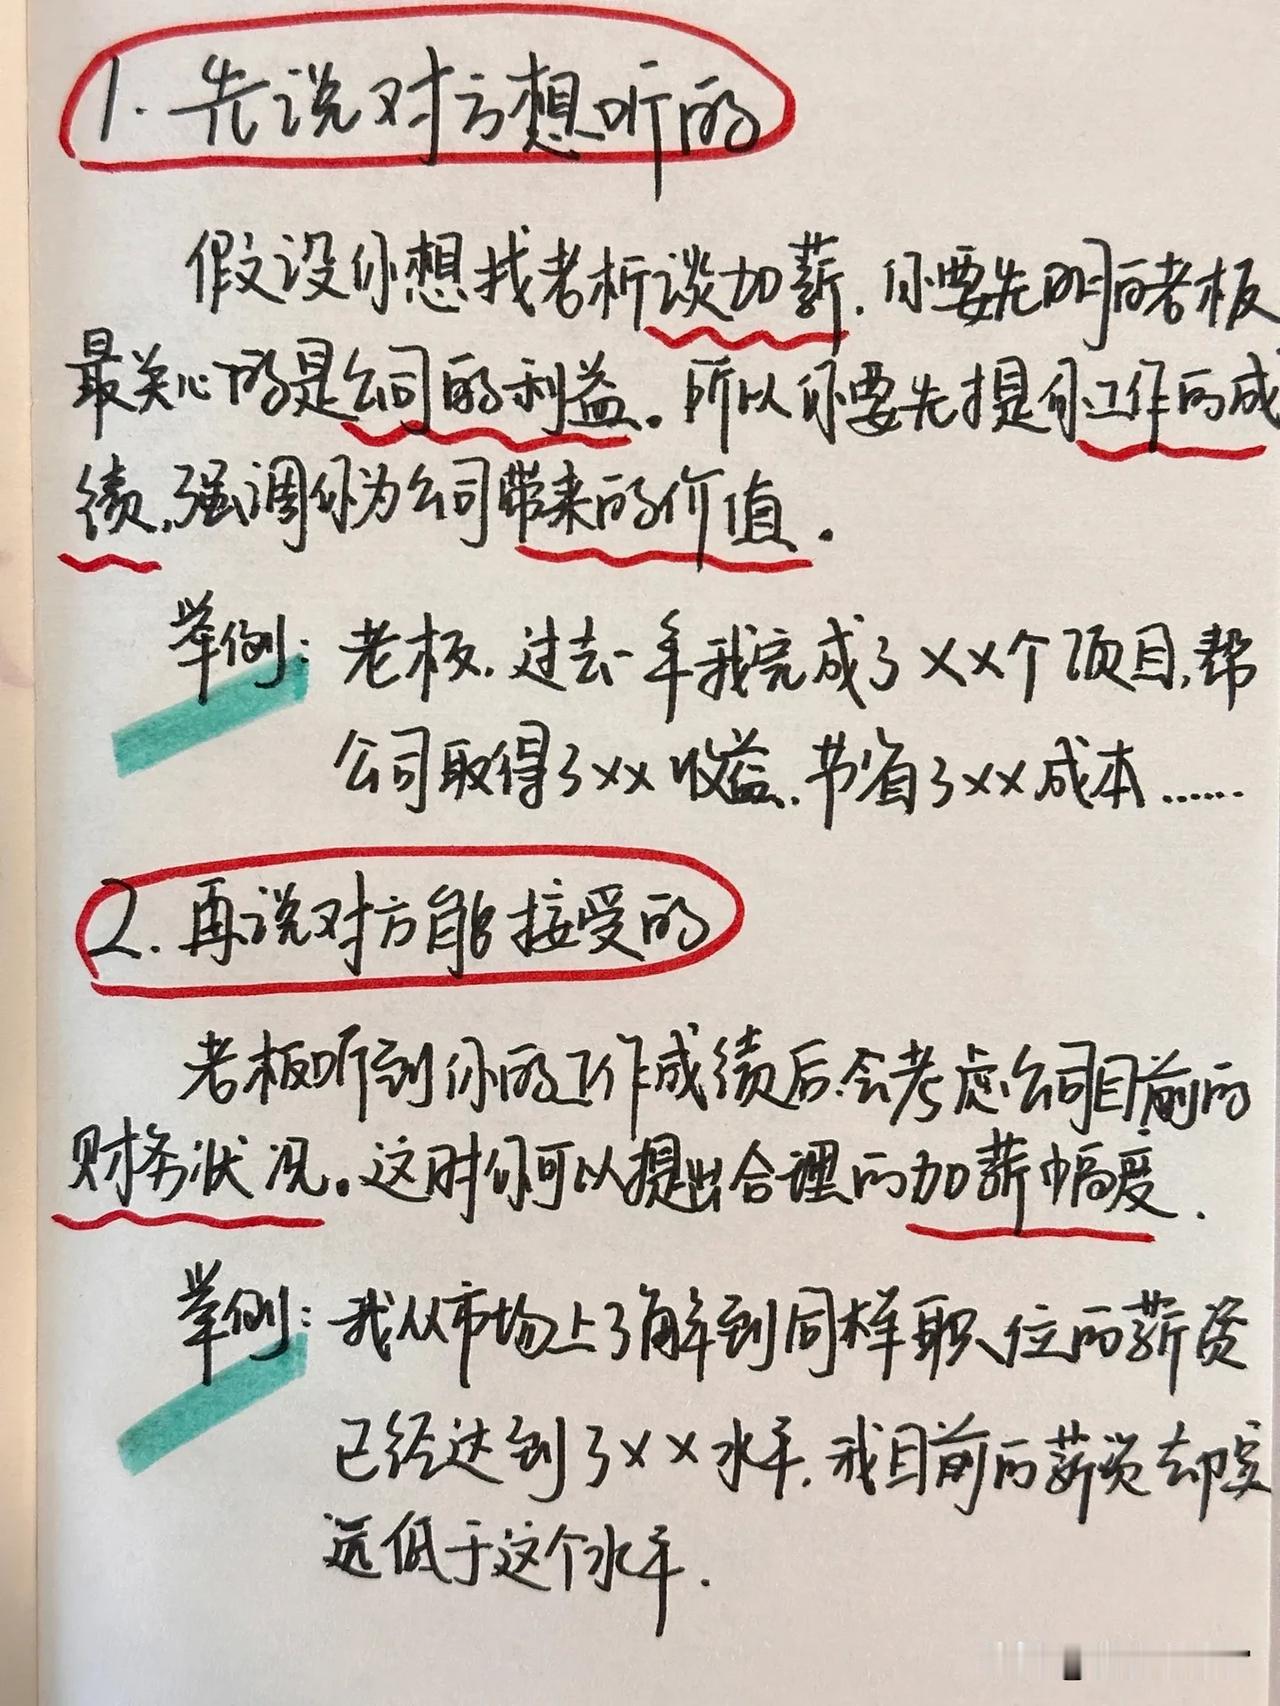 1. 先说对方想听的
假设你想找老板谈加薪. 你要先明白老板
最关心的是公司的利益。所以你要先提你工作的成
绩,强调你为公司带来的价值.
举例: 老板,过去一年我完成了××个项目,帮
公司取得了××收益,节省了××成本......
2. 再说对方能接受的
老板听到你的工作成绩后,会考虑公司目前的
财务状况。这时你可以提出合理的加薪幅度.
举例: 我从市场上了解到同样职位的薪资
已经达到了××水平,我目前的薪资却远
远低于这个水平.